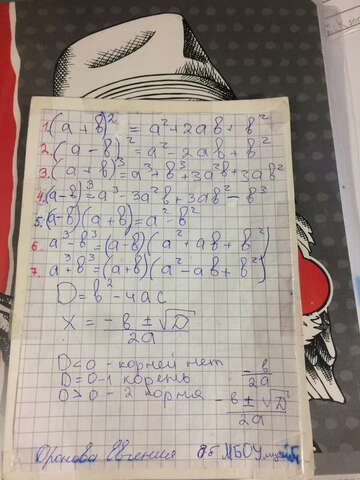 1. (a + b)² = a² + 2ab + b²
2. (a - b)² = a² - 2ab + b²
3. (a + b)³ = a³ + b³ + 3a²b + 3ab²
4. (a - b)³ = a³ - 3a²b + 3ab² - b³
5. (a - b)(a + b) = a² - b²
6 a³ - b³ = (a - b)(a² + ab + b²)
7. a³ + b³ = (a + b)(a² - ab + b²)
D = b² - 4ac
x = (-b ± √D) / 2a
D < 0 - корней нет
D = 0 - 1 корень -b / 2a
D > 0 - 2 корня (-b ± √D) / 2a
Евгения 8б МБОУ